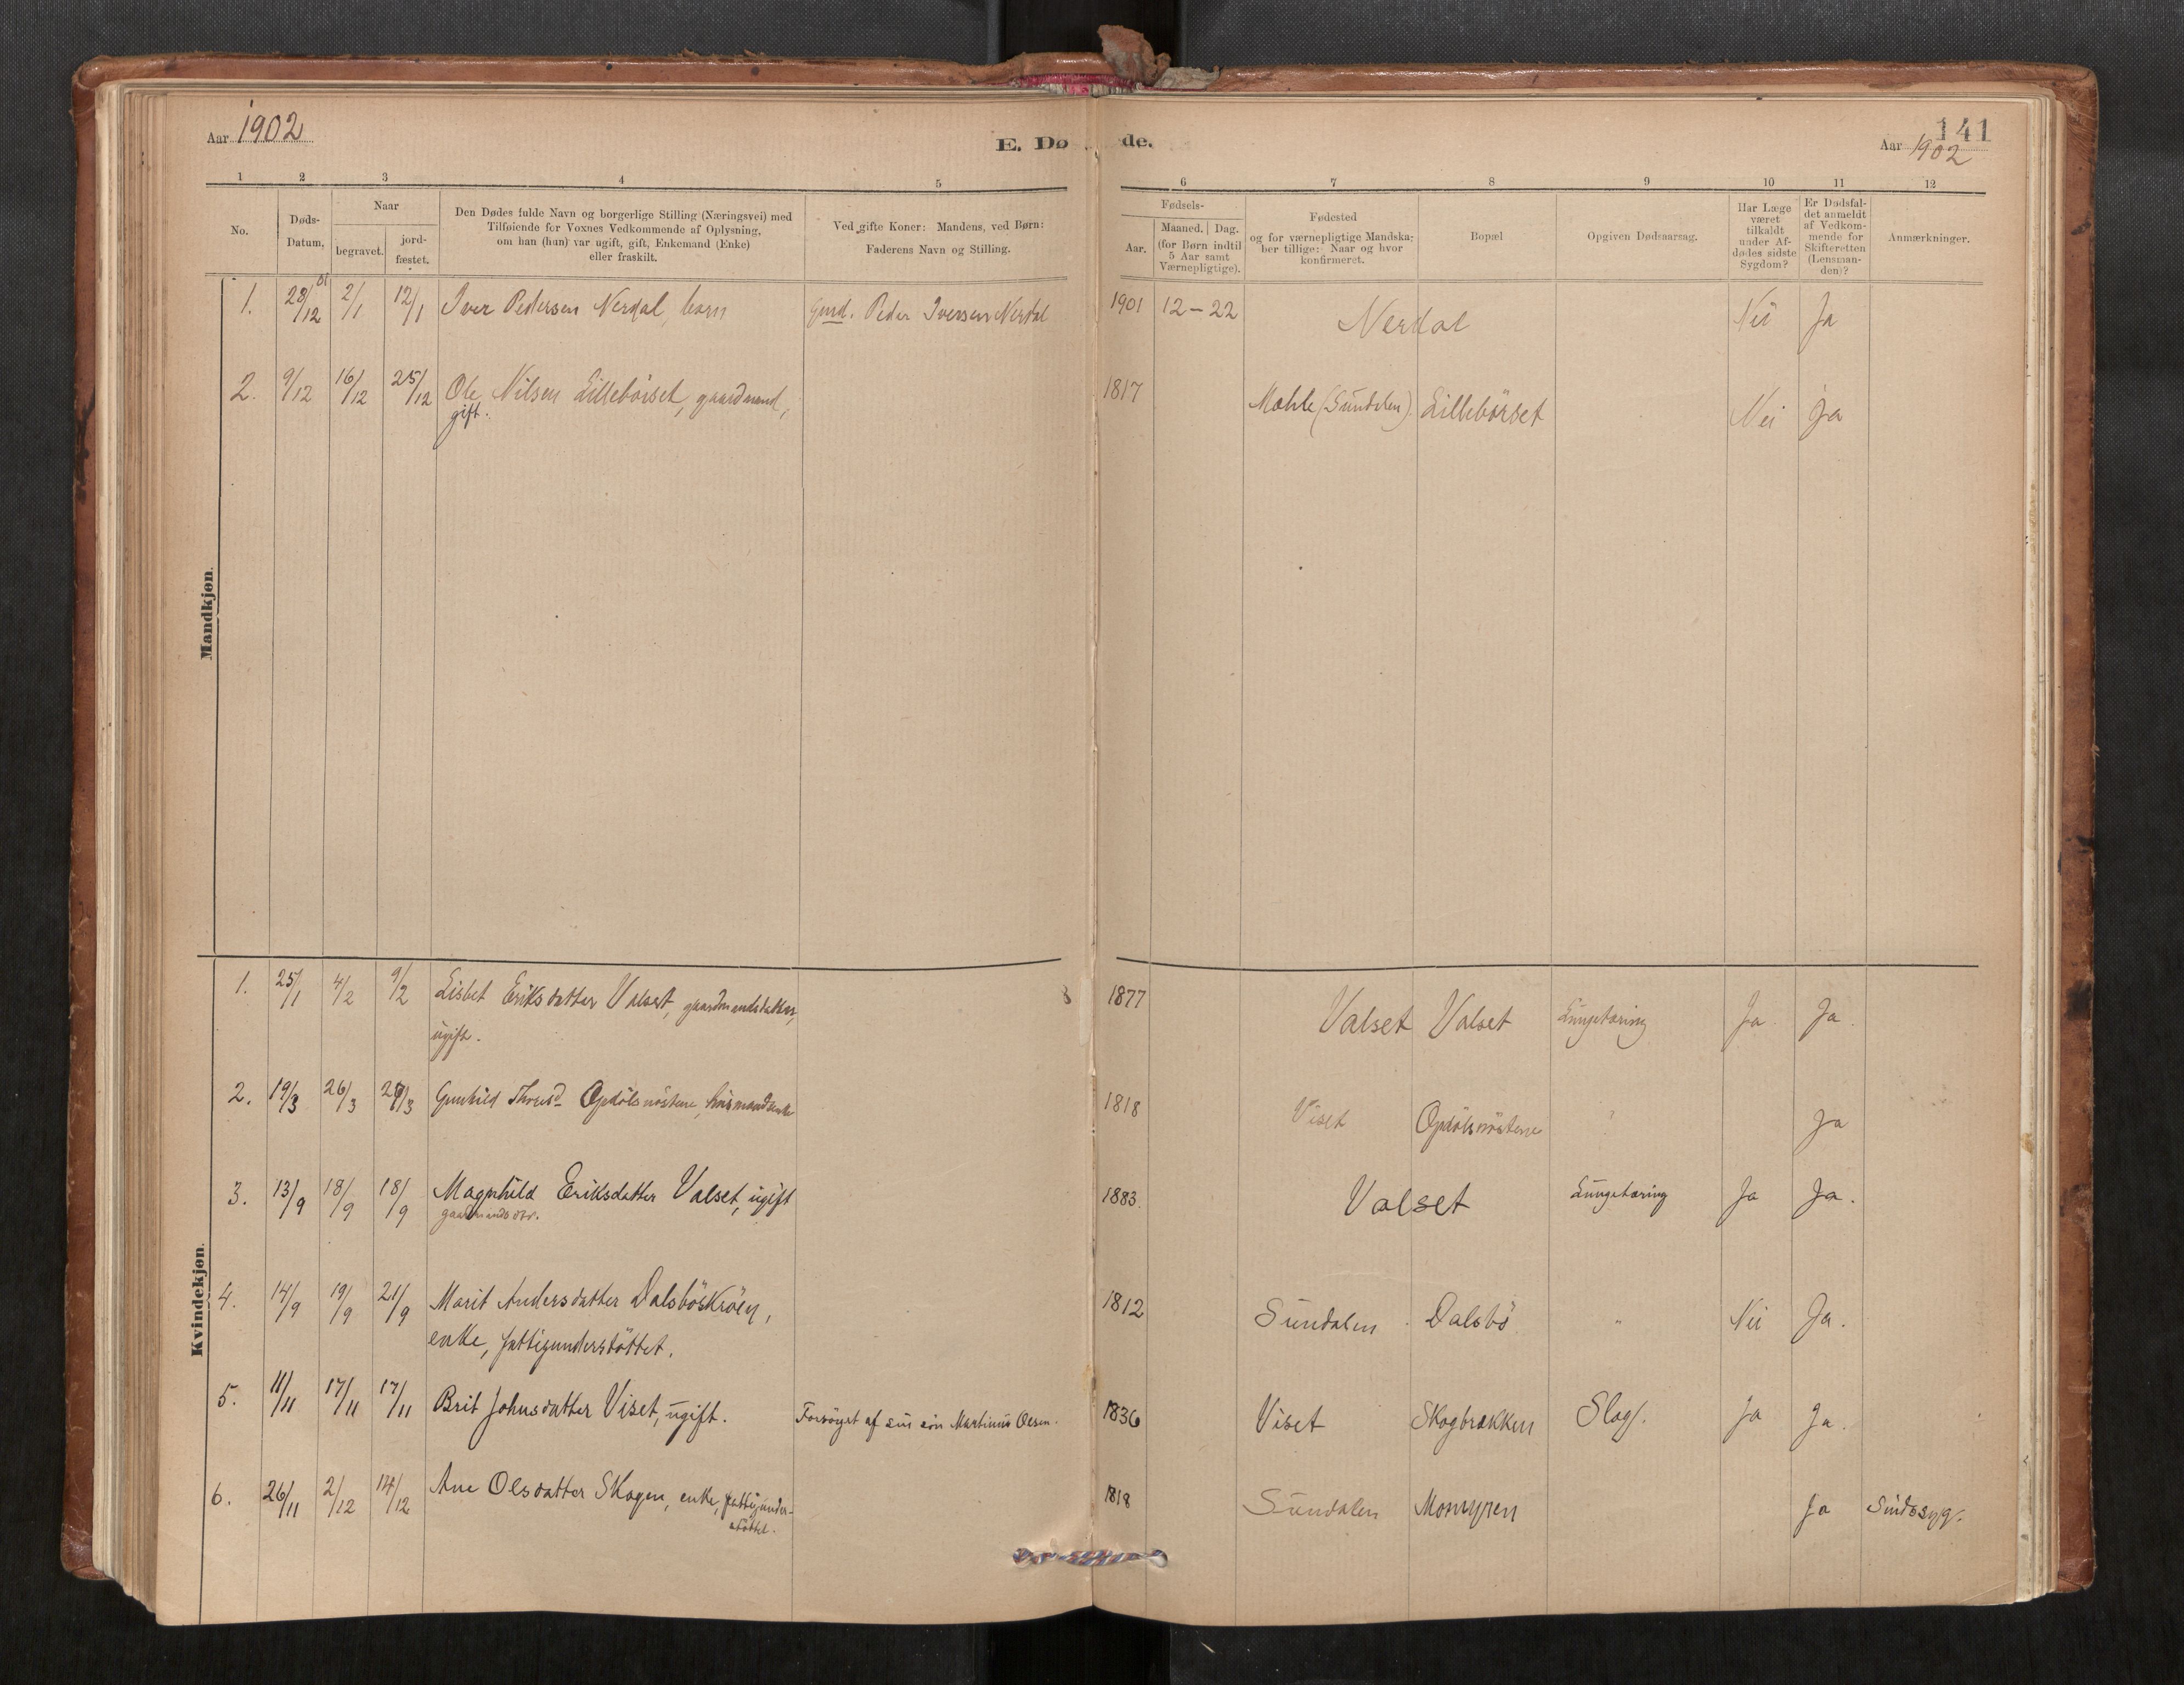 Aar 1902
E. Dø de.
141
Aar 1902
1 2 3 4 5 6 7 8 9 10 11 12
No.
Døds-
Datum,
Naar
begravet.
jord-
fæstet.
Den Dødes fulde Navn og borgerlige Stilling (Næringsvei) med
Tilføiende for Voxnes Vedkommende af Oplysning,
om han (hun) var ugift, gift, Enkemand (Enke)
eller fraskilt.
Ved gifte Koner: Mandens, ved Børn:
Faderens Navn og Stilling.
Fødsels-
Aar.
Maaned. Dag.
(for Børn indtil
5 Aar samt
Værnepligtige).
Fødested
og for værnepligtige Mandska-
ber tillige: Naar og hvor
konfirmeret.
Bopæl
Opgiven Dødsaarsag.
Har Læge
været
tilkaldt
under Af-
dødes sidste
Sygdom?
Er Dødsfal-
det anmeldt
af Vedkom-
mende for
Skifteretten
(Lensman-
den)?
Anmærkninger.
Mandkjøn.
1. 28/12 01 2/1 12/1 Iver Pedersen Nerdal, barn Gmd. Peder Iversen Nerdal 1901 12 – 22 Nerdal Nei Ja
2. 9/12 16/12 25/12 Ole Nilsen Lillebörset, gaardmand, 1817 Mæhle (Sundalen). Lillebörset Nei Ja
gift.
Kvindekjøn.
1. 25/1 4/2 9/2 Lisbet Eriksdatter Valset, gaardmandsdatter, 1877 Valset Valset Lungetæring Ja Ja.
ugift.
2. 19/3 26/3 /3 Gunhild Opdölsnöstene, husmandsenke 1818 Viset Opdölsnöstene ? Ja
3. 13/9 18/9 18/9 Magnhild Eriksdatter Valset, ugift 1883. Valset Lungetæring Ja Ja.
gaardmandsdtr.
4. 14/9 19/9 21/9 Marit Andersdatter Dalsböskröen, 1812 Sundalen Dalsbö " Nei Ja.
enke, fattigunderstöttet.
5. 11/11 17/11 17/11 Brit Johnsdatter Viset, ugift. Forsörget af sin sön Martinus Olsen. 1836 Viset Skogbrækken Slag. Ja Ja.
6. 26/11 2/12 14/12 Ane Olsdatter Skogen, enke, fattigunder- 1818 Sundalen Momyren Ja Sindssyg.
stöttet.